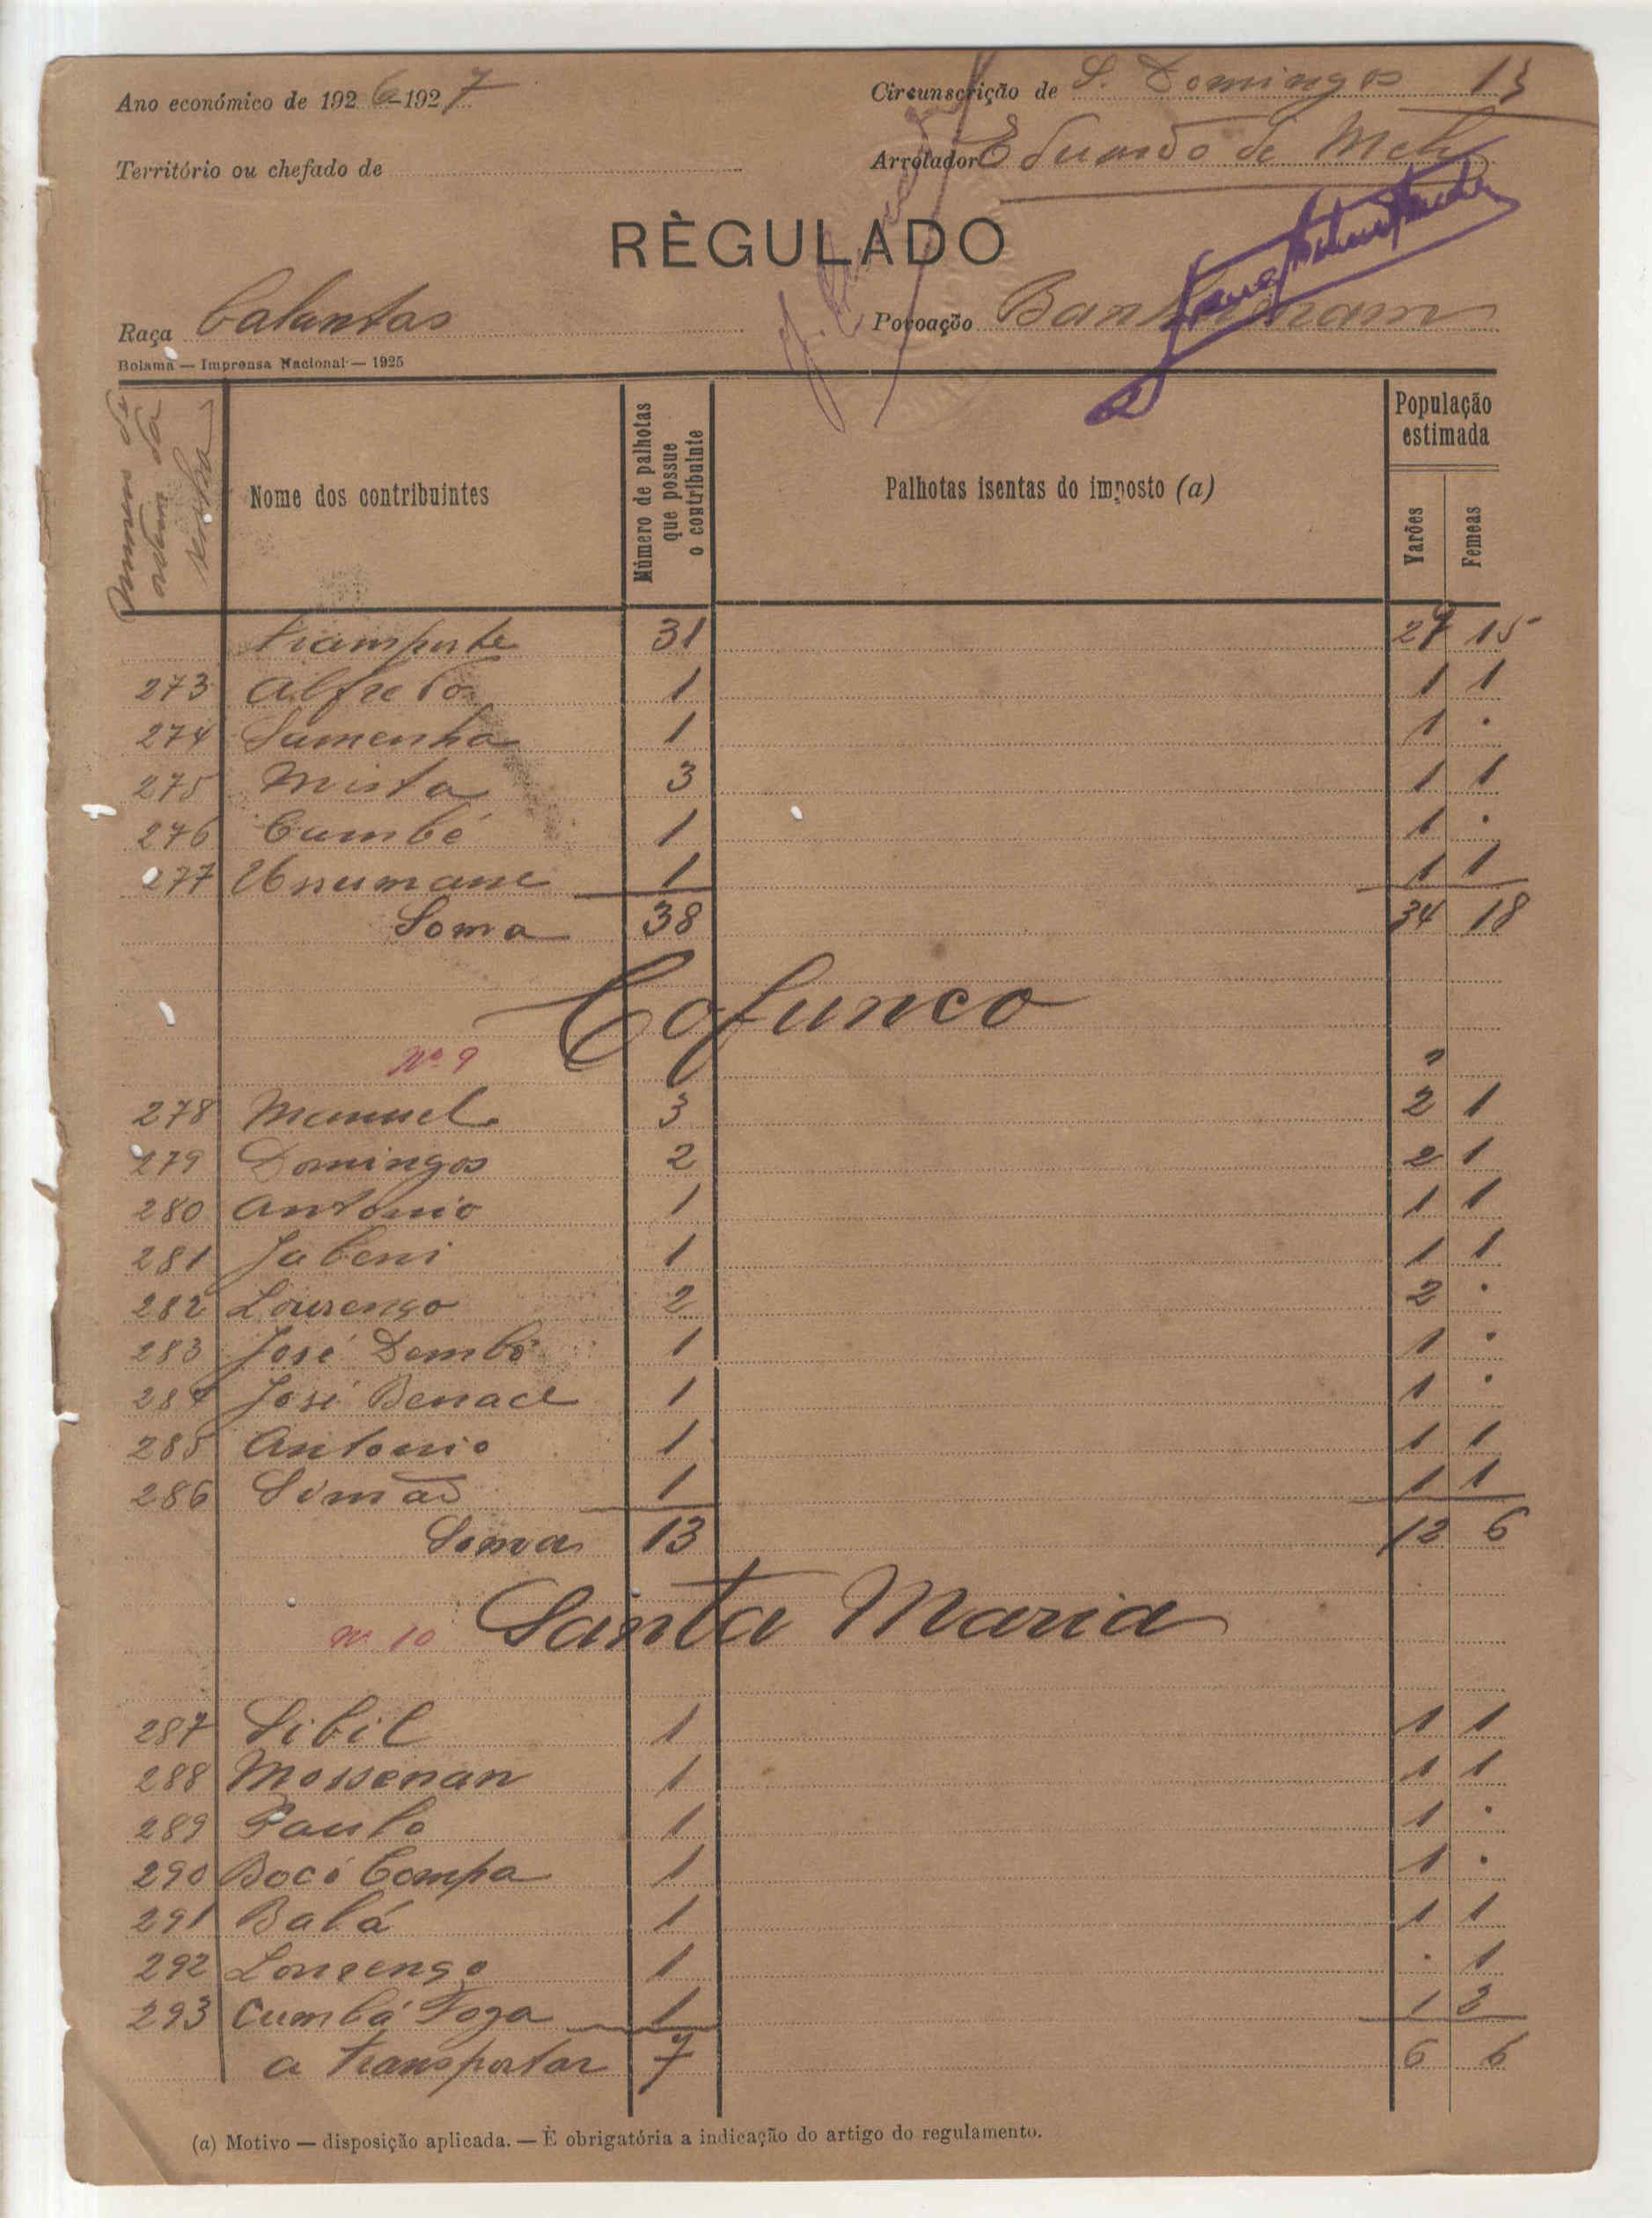 Ano económico de 1926-1927
Circunscrição de S. Domingos 13
Território ou chefado de
Arrolador Eduardo de Melo
RÈGULADO
Raça Balantas
Povoação
Bolama — Imprensa Nacional — 1925
Nome dos contribuintes
Número de palhotas que possue o contribuinte
Palhotas isentas do imposto (a)
População estimada
Varões
Femeas
Transporte 31 29 15
273 Alfredo 1 1 1
274 Samenha 1 1 .
275 Mista 3 1 1
276 Cumbé 1 1 .
277 Ussumane 1 1 1
Soma 38 34 18
Cofunco
Nº 9
278 Manuel 3 2 1
279 Domingos 2 2 1
280 Antonio 1 1 1
281 Jabeni 1 1 1
282 Lourenço 2 2 .
283 José Dembó 1 1 .
284 José Benael 1 1 .
285 Antonio 1 1 1
286 Simão 1 1 1
Soma 13 12 6
Nº 10 Santa Maria
287 Sibil 1 1 1
288 Mossenan 1 1 1
289 Paulo 1 1 .
290 Bocó Compa 1 1 .
291 Balá 1 1 1
292 Lourenço 1 . 1
293 Cumbá Toga 1 1 2
a transportar 7 6 6
(a) Motivo — disposição aplicada. — È obrigatória a indicação do artigo do regulamento.